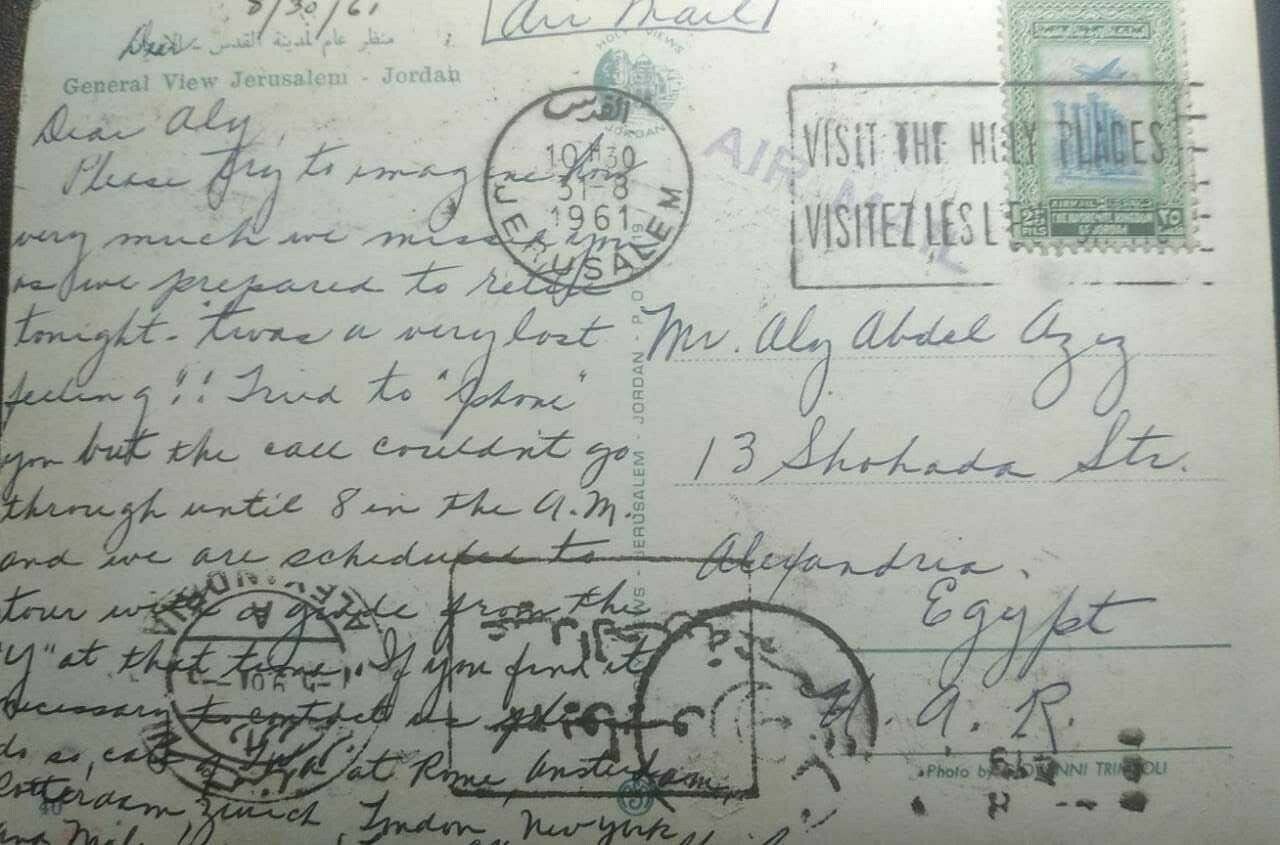 8/30/61
Air Mail
Dear
منظر عام لمدينة القدس
General View Jerusalem - Jordan
HOLY VIEWS
JORDAN
Dear Aly,
Please try to imagine how
very much we miss you
as we prepared to retire
tonight - 'twas a very lost
feeling!! Tried to "phone"
you but the call couldn't go
through until 8 in the A.M.
and we are scheduled to
tour with a guide from the
"Y" at that time. If you find it
necessary to contact us please
do so, at Rome, Amsterdam,
Rotterdam, Zurich, London, New York
and
القدس
10 H 30
31-8
1961
JERUSALEM
AIR MAIL
VISIT THE HOLY PLACES
VISITEZ LES
AIRMAIL
25 FILS
THE HASHEMITE KINGDOM
OF JORDAN
٢٥
Mr. Aly Abdel Aziz
13 Shohada Str.
Alexandria.
Egypt
U. A. R.
JERUSALEM - JORDAN - P.O
ALEXANDRIA
Photo by GIOVANNI TRIMBOLI